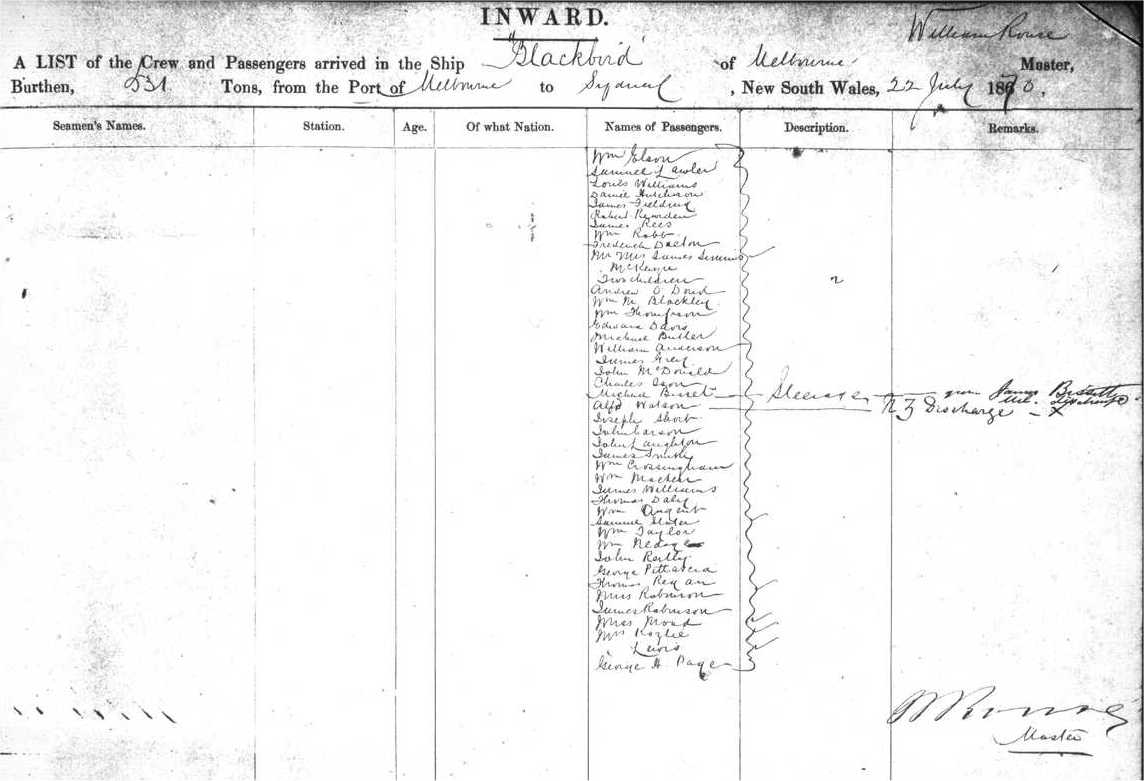 INWARD.
William Rouse
A LIST of the Crew and Passengers arrived in the Ship "Blackbird" of Melbourne Master,
Burthen, 531 Tons, from the Port of Melbourne to Sydney, New South Wales, 22 July 1870.
Seamen's Names. Station. Age. Of what Nation. Names of Passengers. Description. Remarks.
Wm Elson
Samuel Lawler
Louis Williams
Daniel Hutchison
James Fielding
Robert
James Rees
Wm Robb
Frederick Dalton
Mr Mrs James
McKenzie
Two children
Andrew O Dowd
Wm M Blackley
Wm Thompson
Edward Davis
Michael Butler
William Anderson
James Grey
John McDonald
Charles
Michael Bisset Steerage James Bissett
Alfd Watson N Z Discharge X
Joseph Short
John Carson
John Laughton
James Smith
Wm Crossingham
Wm
James Williams
Thomas Daly
Wm Argent
Samuel Slater
Wm Taylor
Wm
John Reilly
George
Thomas Regan
Miss Robinson
James Robinson
Miss
Mrs
Lewis
George H Page
W Rouse
Master